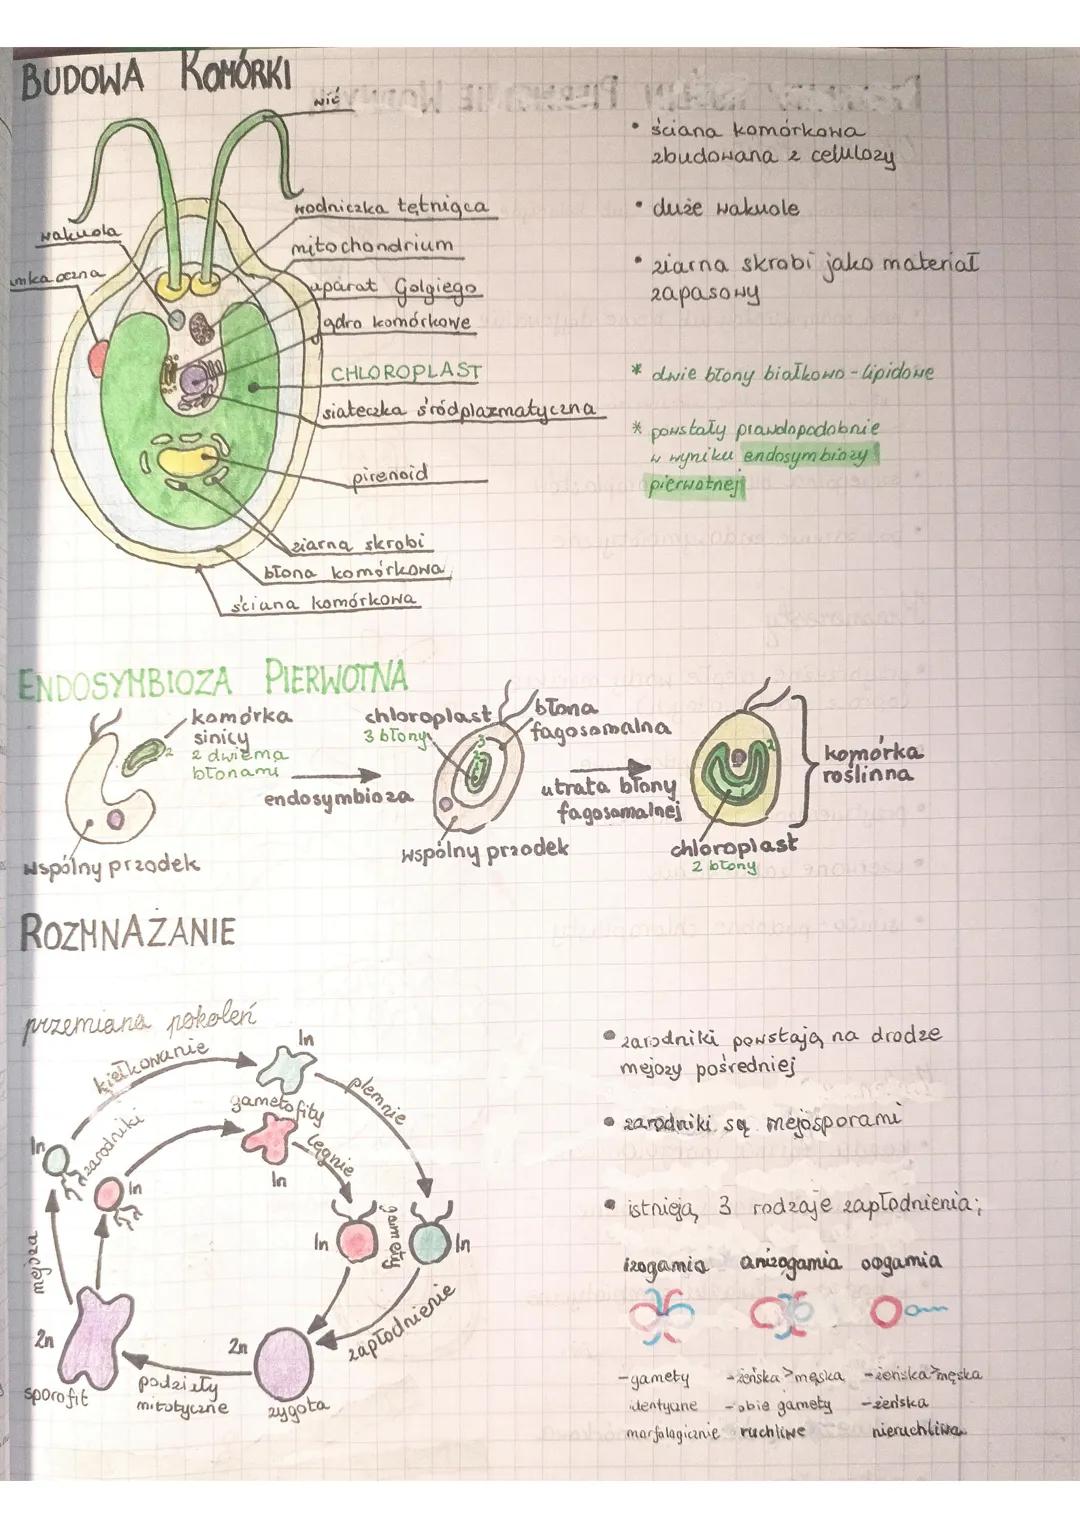 BUDOWA KOMÓRKI
wić
wodniczka tętniąca
wakuola
mitochondrium
amka oczna
aparat Golgiego
jądro komórkowe
CHLOROPLAST
siateczka śródplazmatyczna
pirenoid
ziarna skrobi
błona komórkowa
ściana komórkowa
• ściana komórkowa
zbudowana z celulozy
• duże wakuole
• ziarna skrobi jako materiał
zapasowy
* dwie błony białkowo-lipidowe
* powstały prawdopodobnie
w wyniku endosymbiozy
pierwotnej
ENDOSYMBIOZA PIERWOTNA
komórka
sinicy
z dwiema
błonami
2
wspólny przodek
endosymbioza
chloroplast
3 błony
3
błona
fagosomalna
wspólny przodek
utrata błony
fagosomalnej
2
1
chloroplast
2 błony
komórka
roślinna
ROZMNAŻANIE
przemiana pokoleń
kiełkowanie
1n
gametofity
1n
plemnie
lęgnie
1n
zarodniki
1n
1n
gamety
1n
mejoza
2n
sporofit
podziały
mitotyczne
2n
zygota
zapłodnienie
• zarodniki powstają na drodze
mejozy pośredniej
• zarodniki są mejosporami
• istnieją 3 rodzaje zapłodnienia;
izogamia anizogamia oogamia
-gamety
identyczne
morfologicznie
-żeńska>męska
-obie gamety
ruchliwe
-żeńska>męska
-żeńska
nieruchliwa